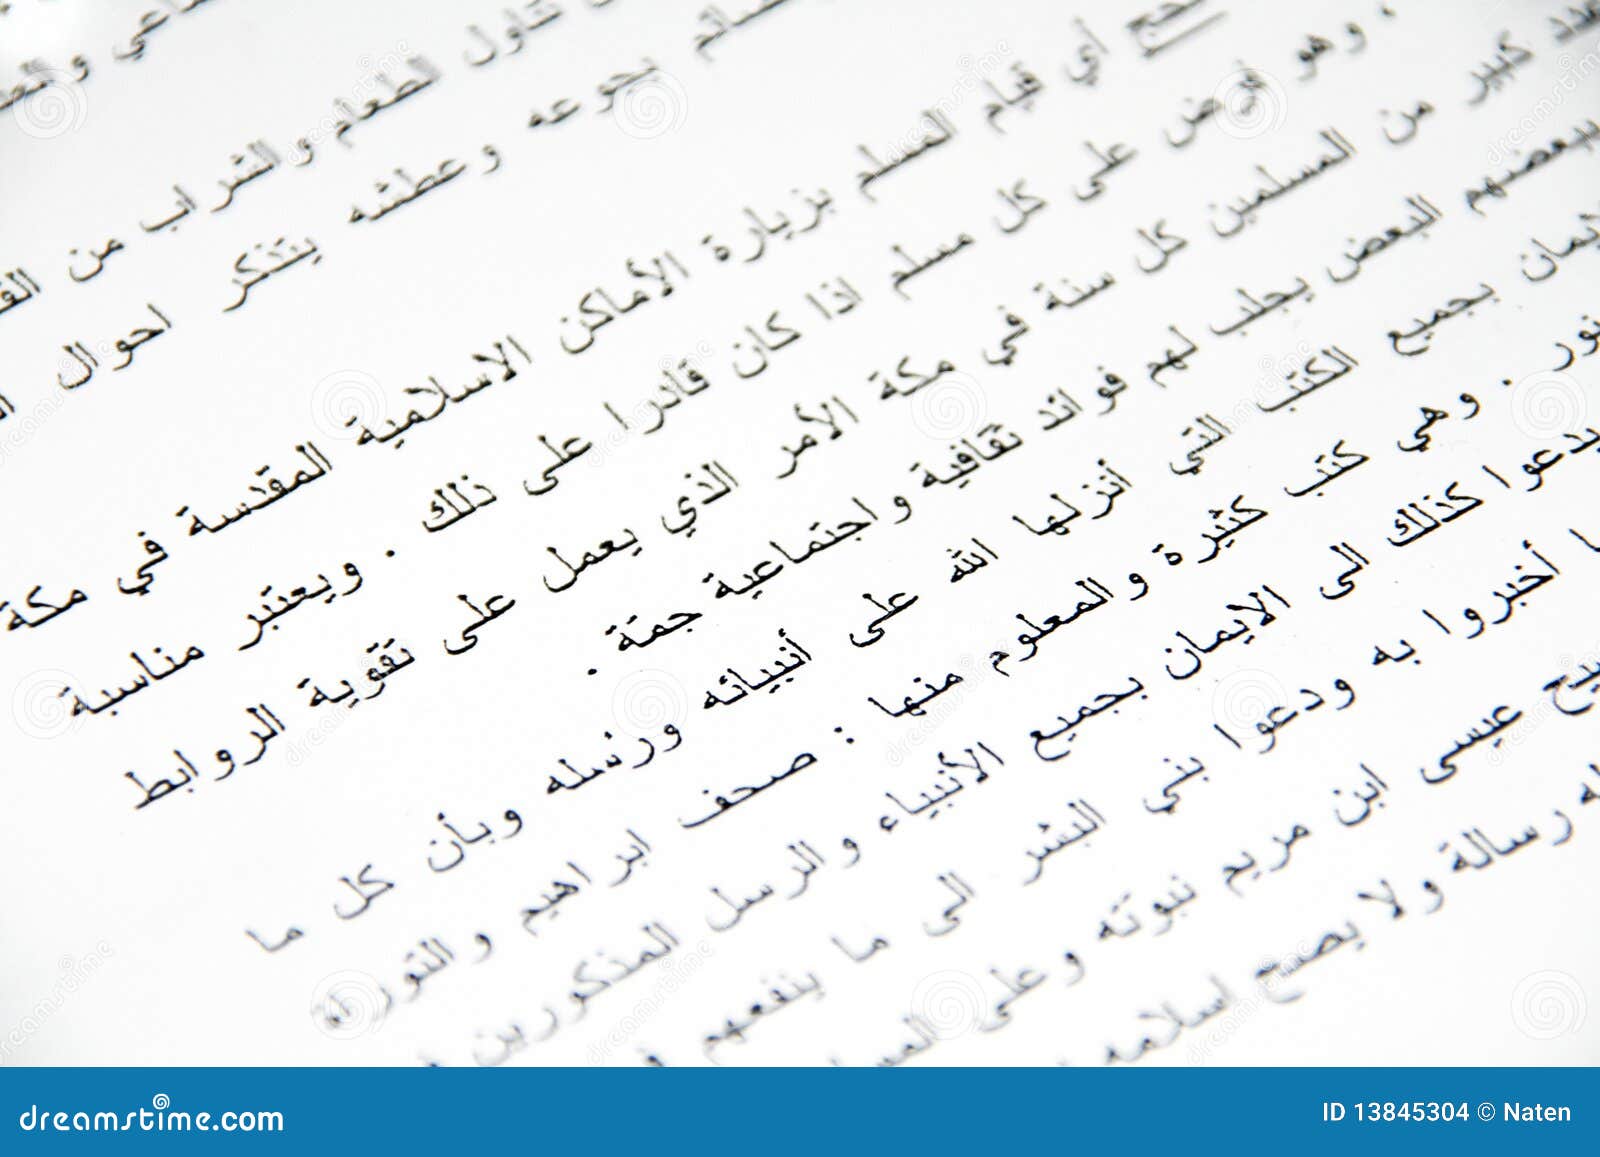 تناول الطعام والشراب من
بجوعه وعطشه يتذكر احوال
أي قيام المسلم بزيارة الأماكن الاسلامية المقدسة في مكة
، وهو فرض على كل مسلم اذا كان قادرا على ذلك . ويعتبر مناسبة
عدد كبير من المسلمين كل سنة في مكة الأمر الذي يعمل على تقوية الروابط
ببعضهم البعض يجلب لهم فوائد ثقافية واجتماعية جمة .
بجميع الكتب التي أنزلها الله على أنبيائه ورسله وبأن كل ما
نور . وهي كتب كثيرة والمعلوم منها : صحف ابراهيم والتوراة
يدعوا كذلك الى الايمان بجميع الأنبياء والرسل المذكورين
أخبروا به ودعوا بني البشر الى ما ينفعهم
عيسى ابن مريم نبوته وعلى
رسالة ولا يصح اسلامه
dreamstime.com
ID 13845304 © Naten